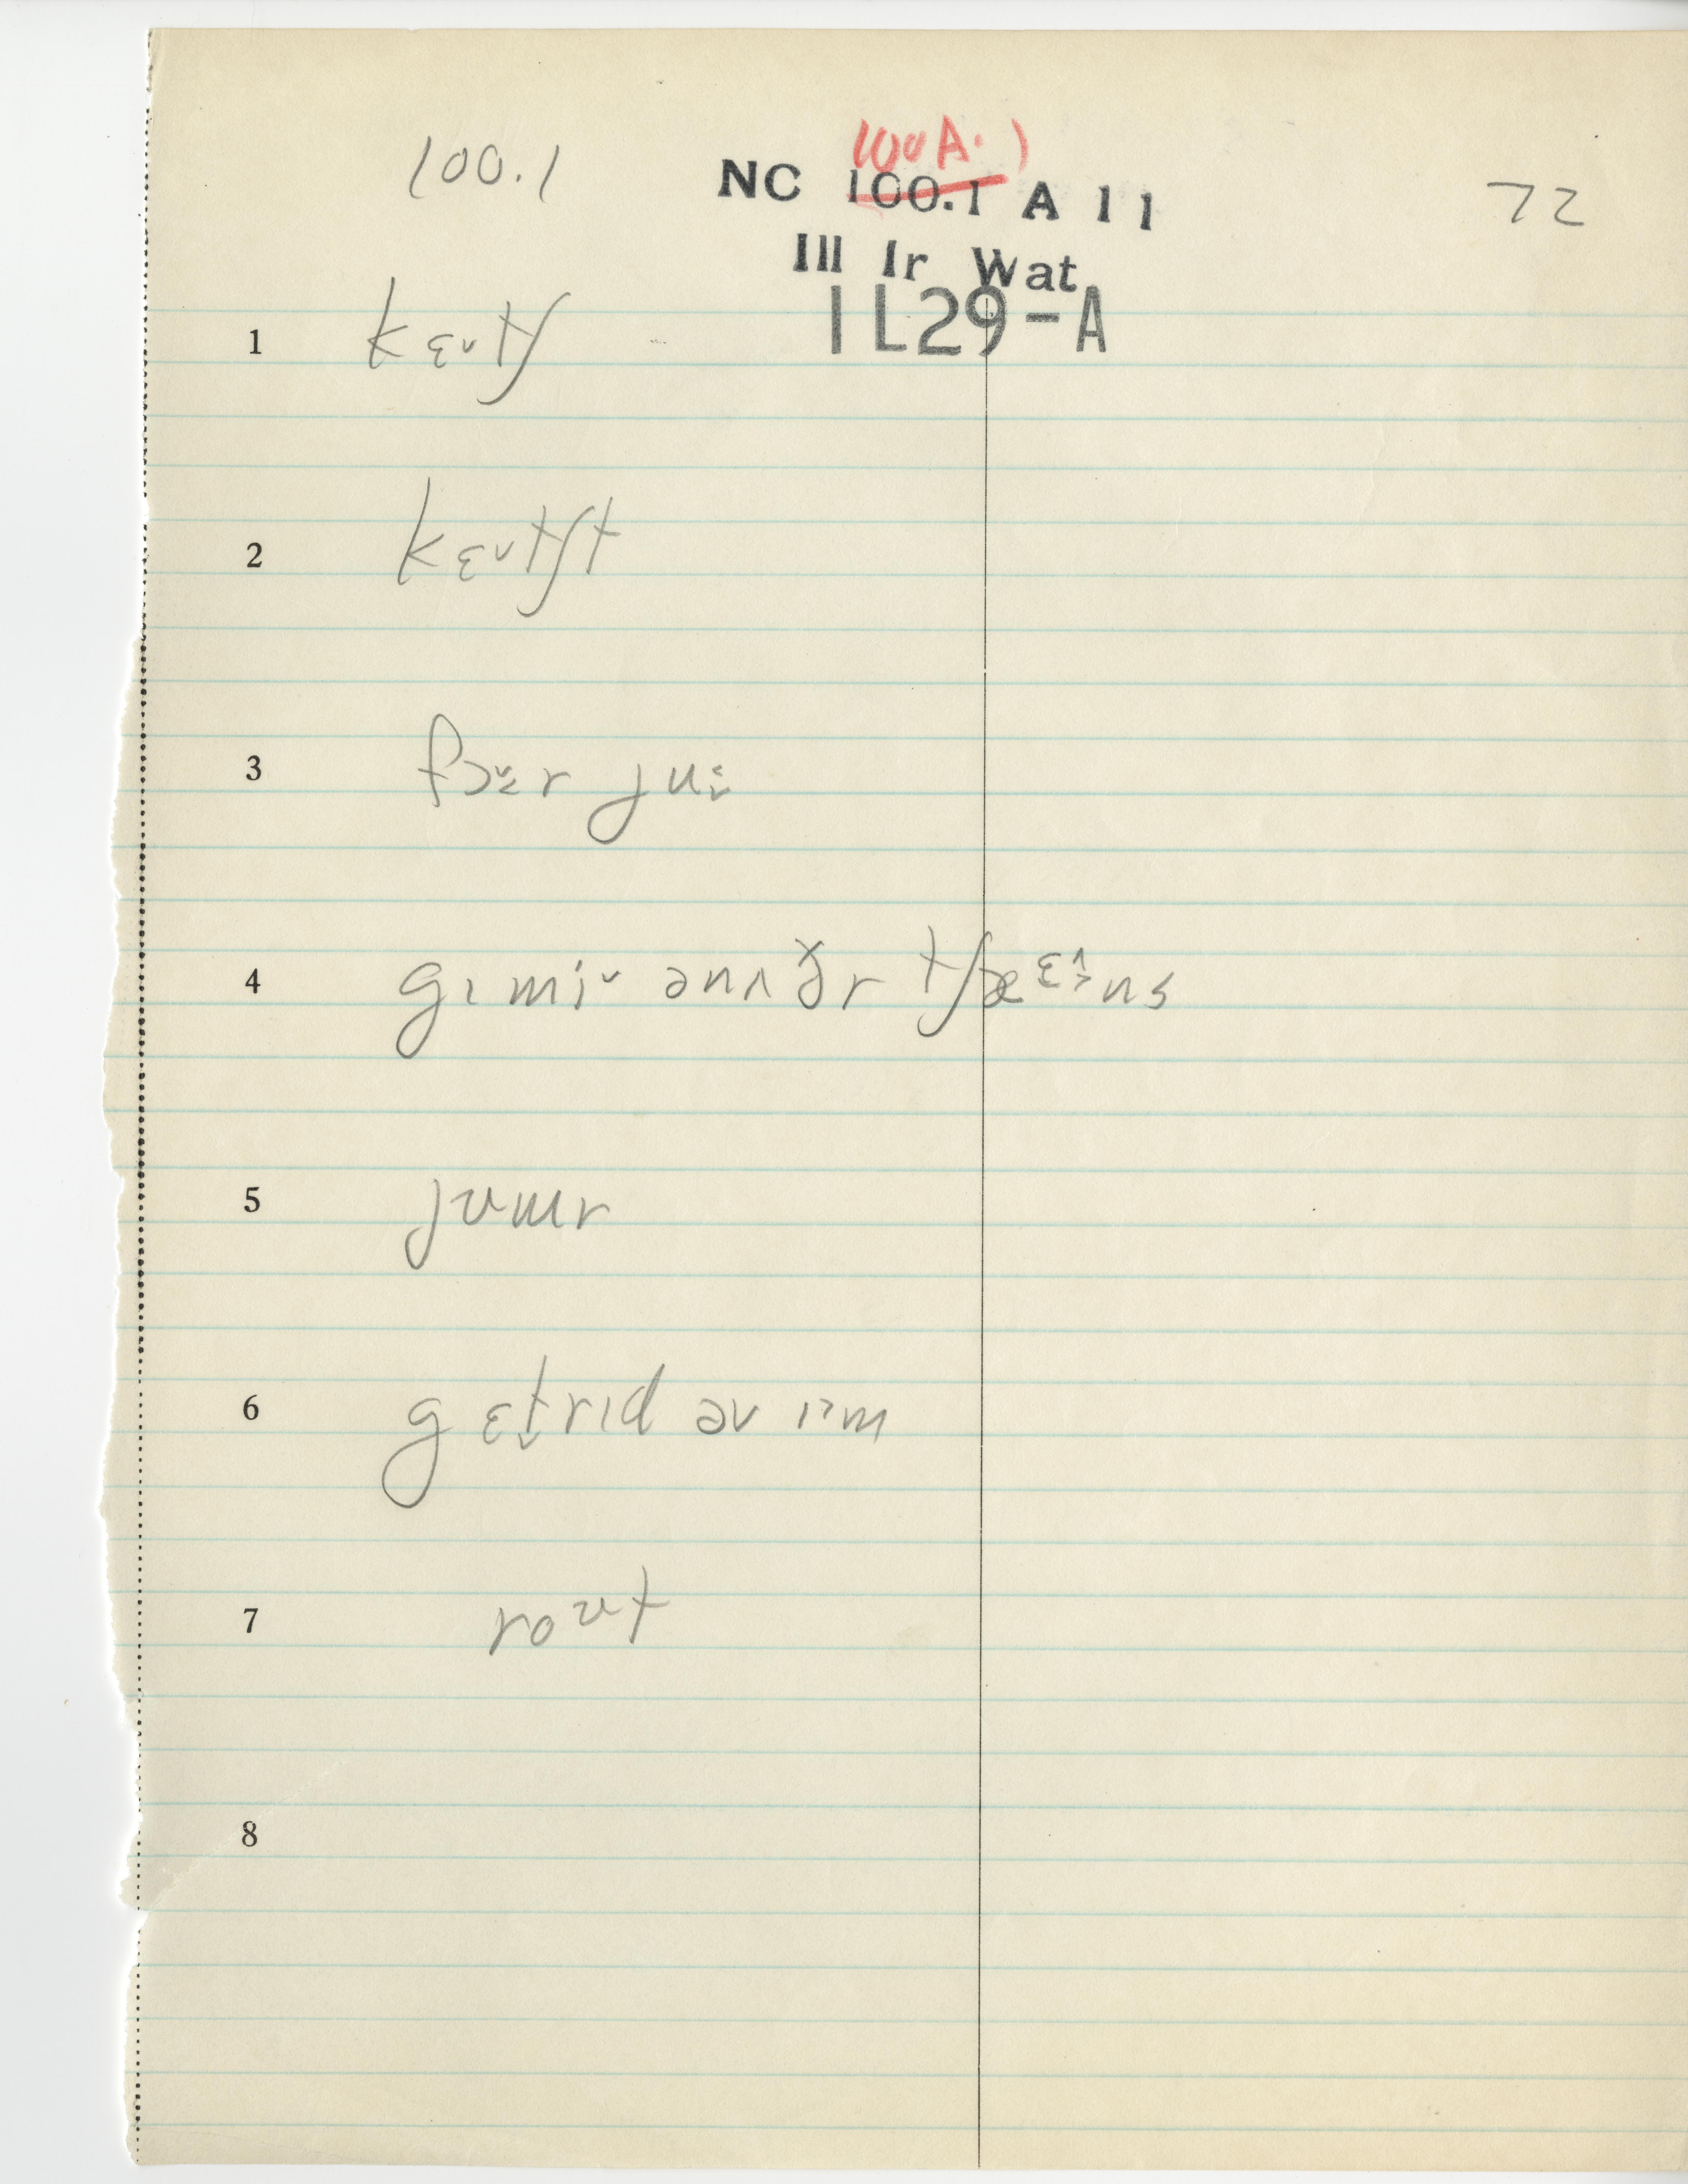 100.1
100A.1
NC 100.1 A 11
72
Ill Ir Wat
IL29-A
1 kɛ˅tʃ
2 kɛ˅tʃt
3 fɔ˅ɪr ju:
4 gɪ mi˅ ənʌðr tʃæɛ^>ns
5 jʊmr
6 gɛt˅rɪd əv ɪ>m
7 roʊt
8